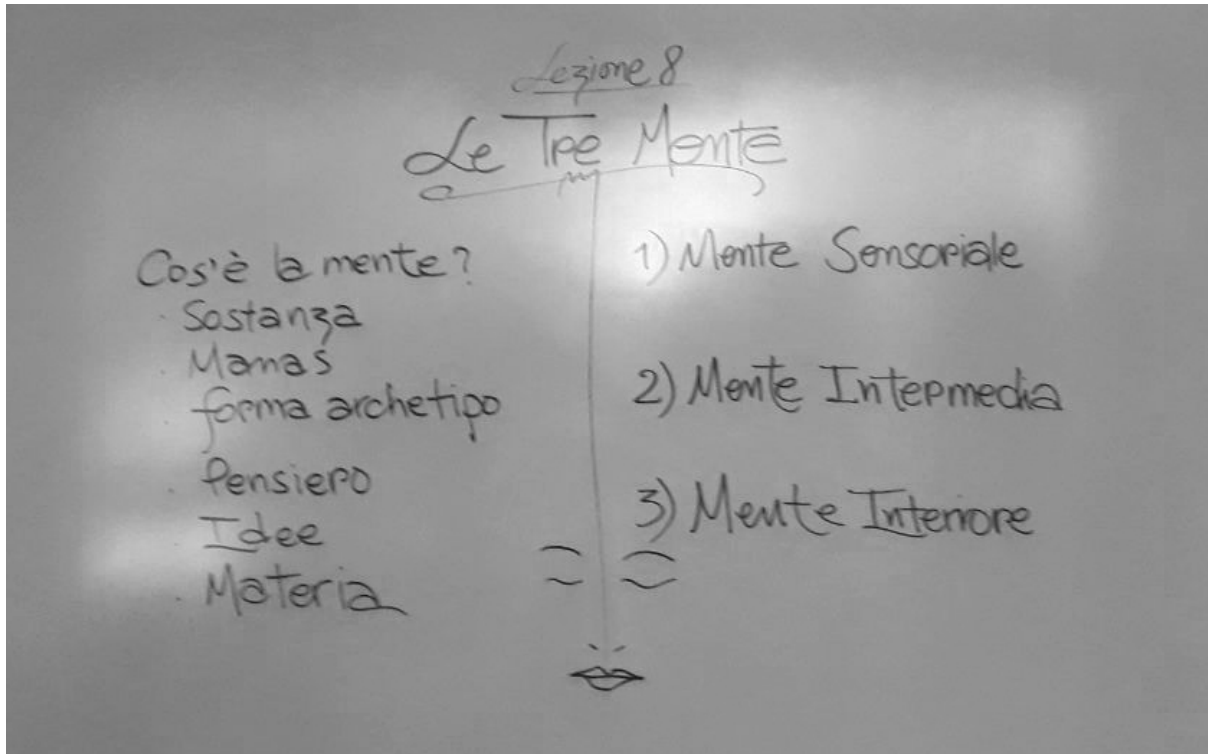 Lezione 8
Le Tre Mente
Cos'è la mente?
Sostanza
Manas
forma archetipo
Pensiero
Idee
Materia
1) Mente Sensoriale
2) Mente Intermedia
3) Mente Interiore